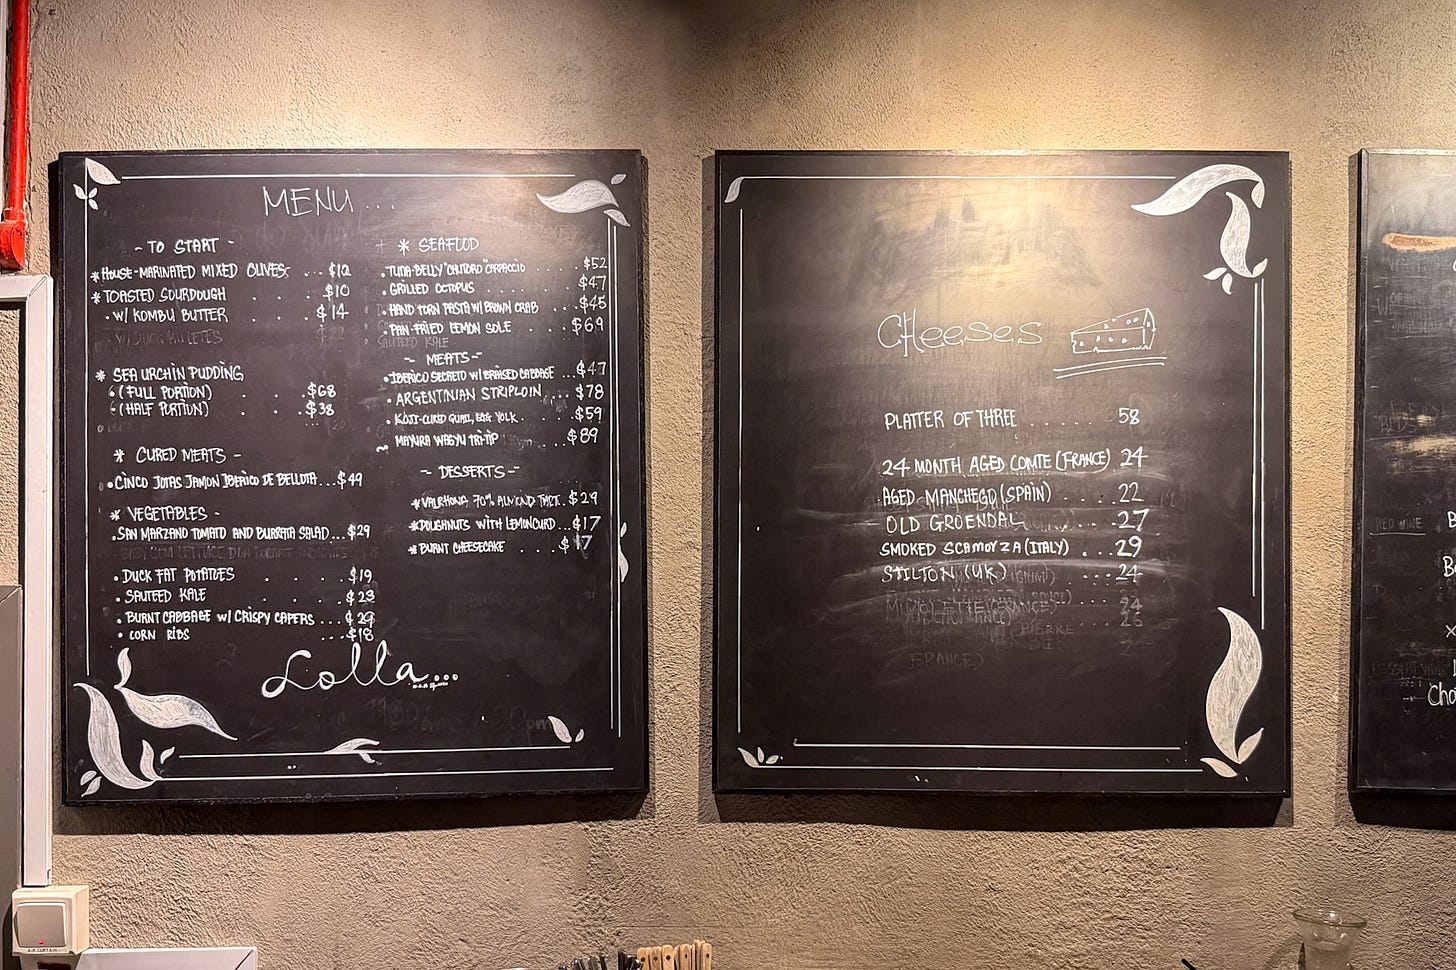 MENU...
- TO START -
* HOUSE-MARINATED MIXED OLIVES. ... $12
* TOASTED SOURDOUGH . . . $10
• W/ KOMBU BUTTER . . . $14
* SEA URCHIN PUDDING
• (FULL PORTION) . . . $68
• (HALF PORTION) . . . $38
* CURED MEATS -
• CINCO JOTAS JAMON IBERICO DE BELLOTA... $49
* VEGETABLES -
• SAN MARZANO TOMATO AND BURRATA SALAD... $29
• DUCK FAT POTATOES . . . $19
• SAUTEED KALE . . . $23
• BURNT CABBAGE W/ CRISPY CAPERS ... $29
• CORN RIBS ... $18
* SEAFOOD
• TUNA-BELLY "CHUTORO" CARPACCIO . . . $52
• GRILLED OCTOPUS . . . . $47
• HAND TORN PASTA W/ BROWN CRAB . . $45
• PAN-FRIED LEMON SOLE . . . . $69
SAUTEED KALE
- MEATS -
• IBERICO SECRETO W/ BRAISED CABBAGE ... $47
• ARGENTINIAN STRIPLOIN . . . $78
• KOJI-CURED QUAIL, EGG YOLK . . . . $59
MAYURA WAGYU TRI-TIP . . . . $89
- DESSERTS -
* VALRHONA 70% ALMOND TART.. $29
* DOUGHNUTS WITH LEMON CURD... $17
* BURNT CHEESECAKE . . . . $17
Lolla...
CHeeses
PLATTER OF THREE ..... 58
24 MONTH AGED COMTE (FRANCE) 24
AGED MANCHEGO (SPAIN) .... 22
OLD GROENDAL 27
SMOKED SCAMORZA (ITALY) ... 29
STILTON (UK) ... 24
FRANCE)
RED WINE
AIR CURTAIN